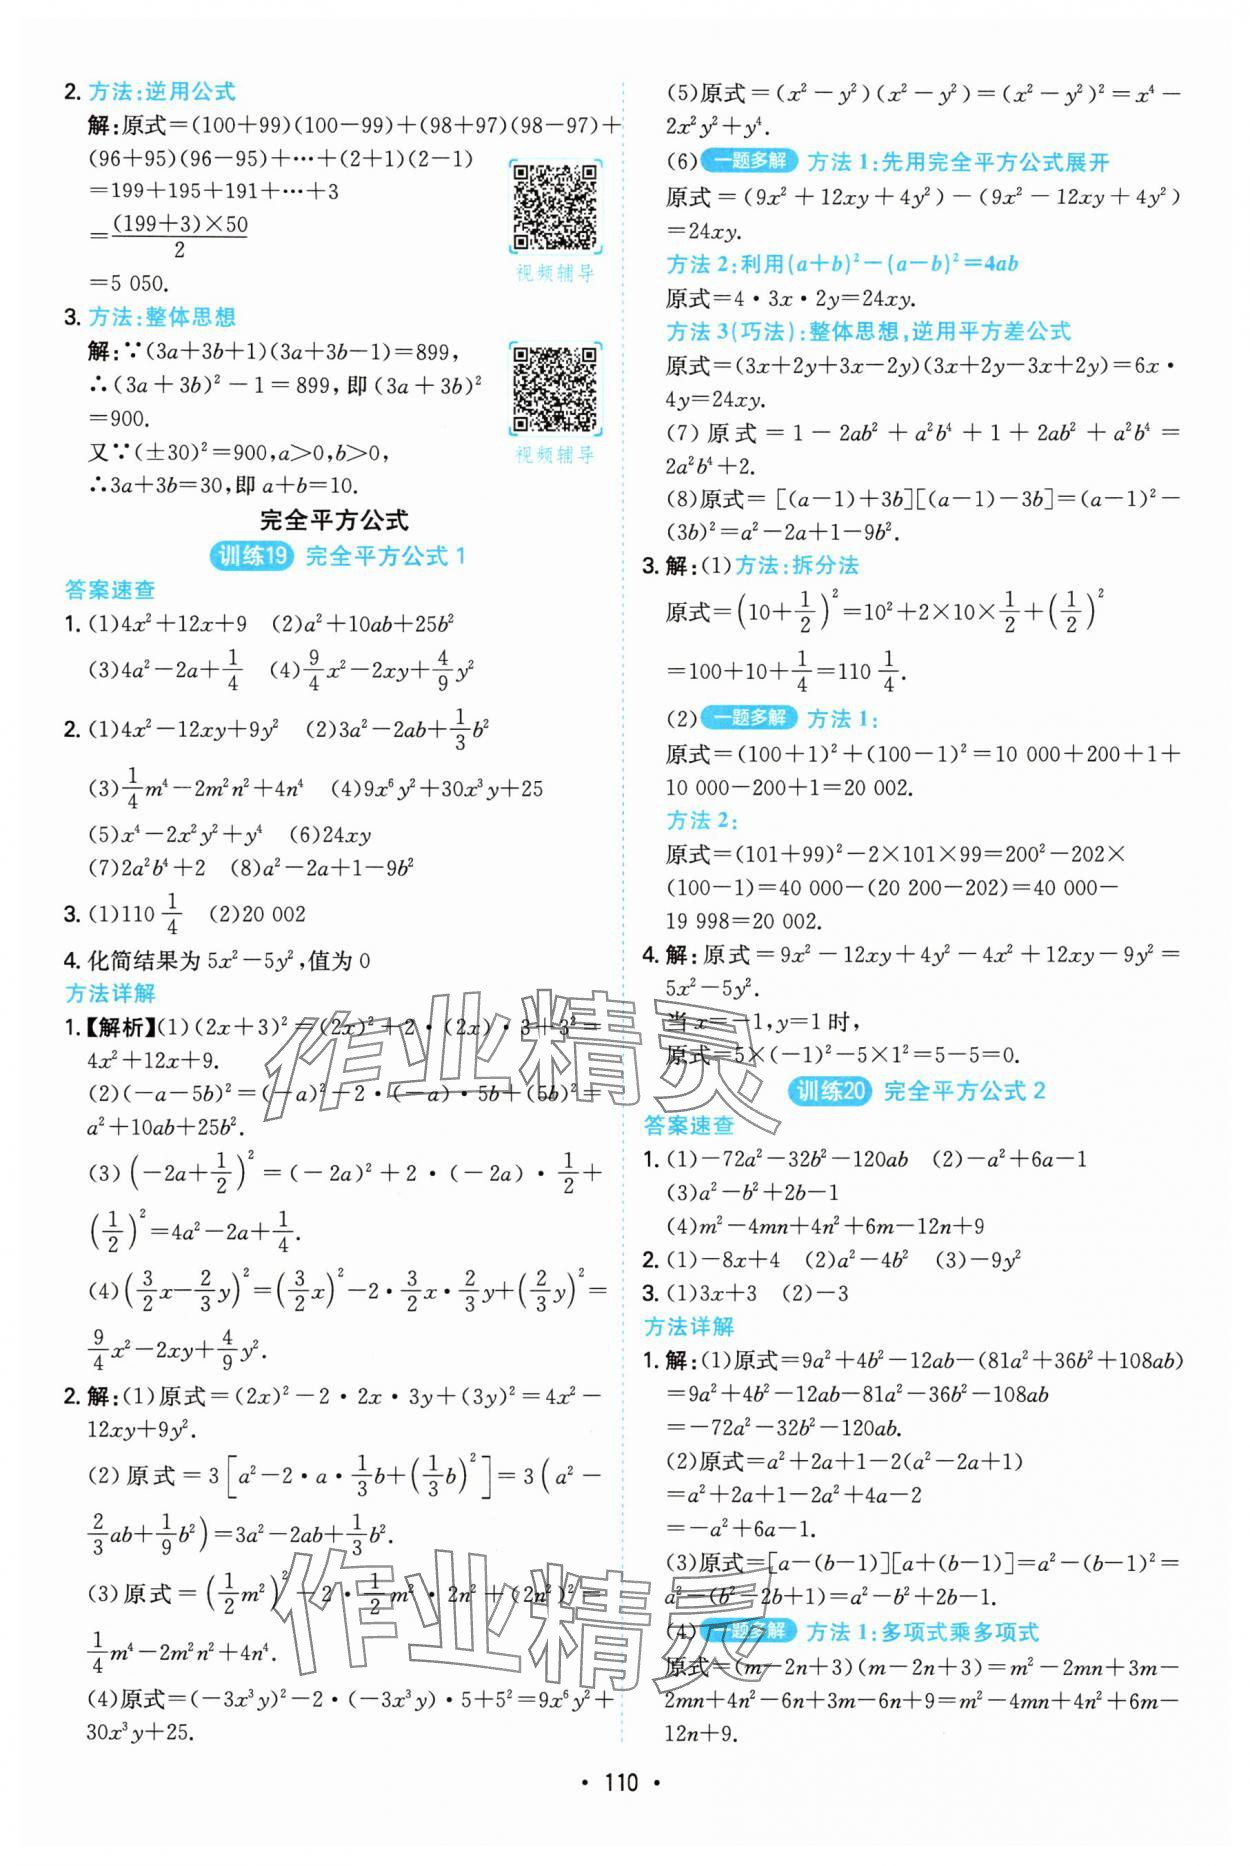 2. 方法:逆用公式
解:原式=(100+99)(100-99)+(98+97)(98-97)+
(96+95)(96-95)+…+(2+1)(2-1)
=199+195+191+…+3
=\frac{(199+3)×50}{2}
=5 050.
视频辅导
3. 方法:整体思想
解:∵(3a+3b+1)(3a+3b-1)=899,
∴(3a+3b)²-1=899,即(3a+3b)²
=900.
又∵(±30)²=900,a>0,b>0,
∴3a+3b=30,即a+b=10.
视频辅导
完全平方公式
训练19 完全平方公式1
答案速查
1. (1)4x²+12x+9 (2)a²+10ab+25b²
(3)4a²-2a+\frac{1}{4} (4)\frac{9}{4}x²-2xy+\frac{4}{9}y²
2. (1)4x²-12xy+9y² (2)3a²-2ab+\frac{1}{3}b²
(3)\frac{1}{4}m⁴-2m²n²+4n⁴ (4)9x⁶y²+30x³y+25
(5)x⁴-2x²y²+y⁴ (6)24xy
(7)2a²b⁴+2 (8)a²-2a+1-9b²
3. (1)110\frac{1}{4} (2)20 002
4. 化简结果为5x²-5y²,值为0
方法详解
1.【解析】(1)(2x+3)²=(2x)²+2·(2x)·3+3²=
4x²+12x+9.
(2)(-a-5b)²=(-a)²-2·(-a)·5b+(5b)²=
a²+10ab+25b².
(3)(-2a+\frac{1}{2})²=(-2a)²+2·(-2a)·\frac{1}{2}+
(\frac{1}{2})²=4a²-2a+\frac{1}{4}.
(4)(\frac{3}{2}x-\frac{2}{3}y)²=(\frac{3}{2}x)²-2·\frac{3}{2}x·\frac{2}{3}y+(\frac{2}{3}y)²=
\frac{9}{4}x²-2xy+\frac{4}{9}y².
2. 解:(1)原式=(2x)²-2·2x·3y+(3y)²=4x²-
12xy+9y².
(2)原式=3[a²-2·a·\frac{1}{3}b+(\frac{1}{3}b)²]=3(a²-
\frac{2}{3}ab+\frac{1}{9}b²)=3a²-2ab+\frac{1}{3}b².
(3)原式=(\frac{1}{2}m²)²-2·\frac{1}{2}m²·2n²+(2n²)²=
\frac{1}{4}m⁴-2m²n²+4n⁴.
(4)原式=(-3x³y)²-2·(-3x³y)·5+5²=9x⁶y²+
30x³y+25.
(5)原式=(x²-y²)(x²-y²)=(x²-y²)²=x⁴-
2x²y²+y⁴.
(6)一题多解 方法1:先用完全平方公式展开
原式=(9x²+12xy+4y²)-(9x²-12xy+4y²)
=24xy.
方法2:利用(a+b)²-(a-b)²=4ab
原式=4·3x·2y=24xy.
方法3(巧法):整体思想,逆用平方差公式
原式=(3x+2y+3x-2y)(3x+2y-3x+2y)=6x·
4y=24xy.
(7)原式=1-2ab²+a²b⁴+1+2ab²+a²b⁴=
2a²b⁴+2.
(8)原式=[(a-1)+3b][(a-1)-3b]=(a-1)²-
(3b)²=a²-2a+1-9b².
3. 解:(1)方法:拆分法
原式=(10+\frac{1}{2})²=10²+2×10×\frac{1}{2}+(\frac{1}{2})²
=100+10+\frac{1}{4}=110\frac{1}{4}.
(2)一题多解 方法1:
原式=(100+1)²+(100-1)²=10 000+200+1+
10 000-200+1=20 002.
方法2:
原式=(101+99)²-2×101×99=200²-202×
(100-1)=40 000-(20 200-202)=40 000-
19 998=20 002.
4. 解:原式=9x²-12xy+4y²-4x²+12xy-9y²=
5x²-5y².
当x=-1,y=1时,
原式=5×(-1)²-5×1²=5-5=0.
训练20 完全平方公式2
答案速查
1. (1)-72a²-32b²-120ab (2)-a²+6a-1
(3)a²-b²+2b-1
(4)m²-4mn+4n²+6m-12n+9
2. (1)-8x+4 (2)a²-4b² (3)-9y²
3. (1)3x+3 (2)-3
方法详解
1. 解:(1)原式=9a²+4b²-12ab-(81a²+36b²+108ab)
=9a²+4b²-12ab-81a²-36b²-108ab
=-72a²-32b²-120ab.
(2)原式=a²+2a+1-2(a²-2a+1)
=a²+2a+1-2a²+4a-2
=-a²+6a-1.
(3)原式=[a-(b-1)][a+(b-1)]=a²-(b-1)²=
a²-(b²-2b+1)=a²-b²+2b-1.
(4)一题多解 方法1:多项式乘多项式
原式=(m-2n+3)(m-2n+3)=m²-2mn+3m-
2mn+4n²-6n+3m-6n+9=m²-4mn+4n²+6m-
12n+9.
作业精灵
作业精灵
·110·